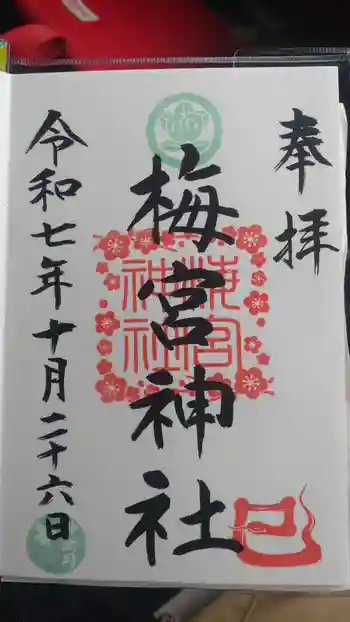 奉拝
梅宮神社
梅宮
神社
令和七年十月二十六日
巳